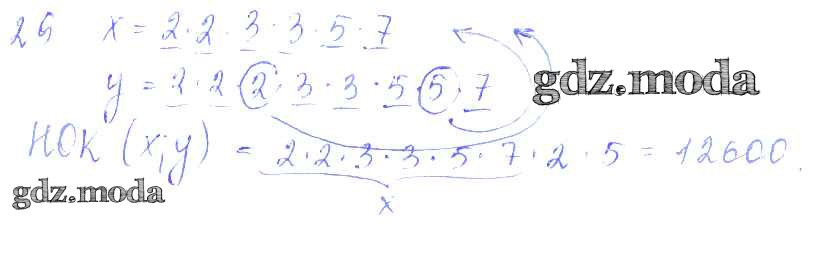 26 x = 2 · 2 · 3 · 3 · 5 · 7
y = 2 · 2 · 2 · 3 · 3 · 5 · 5 · 7
gdz.moda
НОК (x; y) = 2 · 2 · 3 · 3 · 5 · 7 · 2 · 5 = 12600.
gdz.moda
x